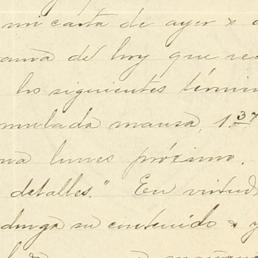 mi carta de ayer x
de hoy que re
los siguientes térmi
mulada mausa, 1.37
na lunes próximo.
detalles." En virtud
duzga su contenido x y